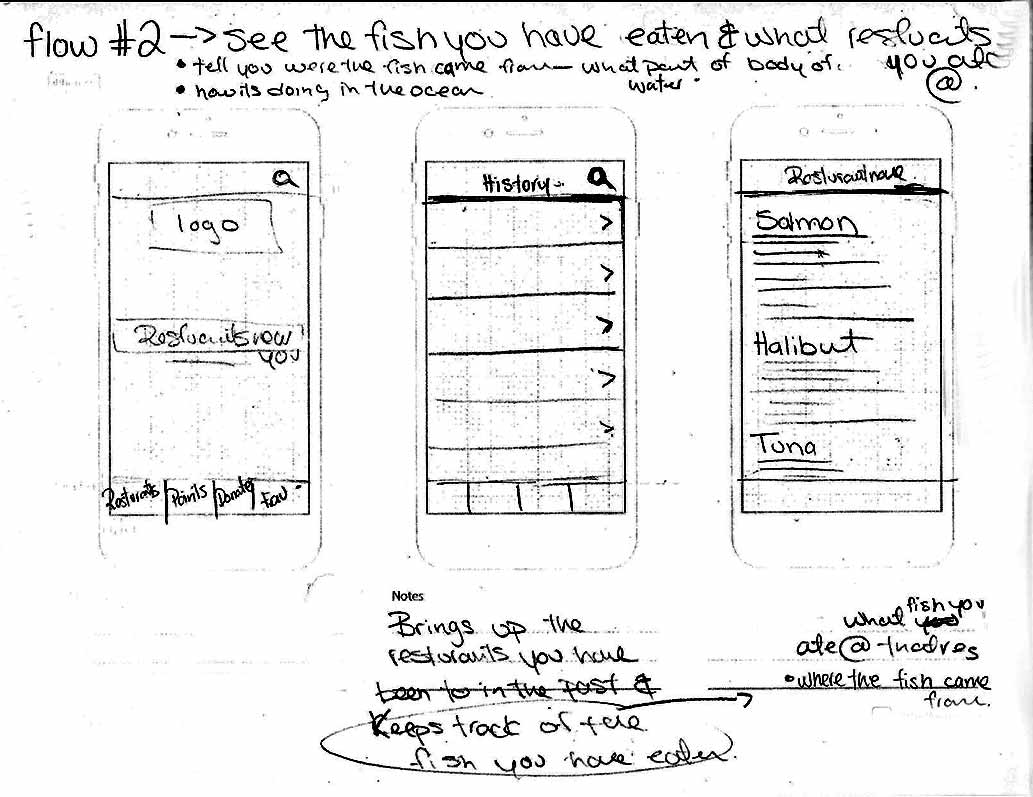 flow #2 -> see the fish you have eaten & what resturaits you ate @.
• tell you were the fish came from — what part of body of water.
• how its doing in the ocean
logo
Resturaits near you
Resturaits | Points | Donate | Fav
History
Resturaut name
Salmon
Halibut
Tuna
Notes
Brings up the
resturaits you have
been to in the past &
Keeps track of the
fish you have eaten.
what fish you
ate @ that res
• where the fish came
from.